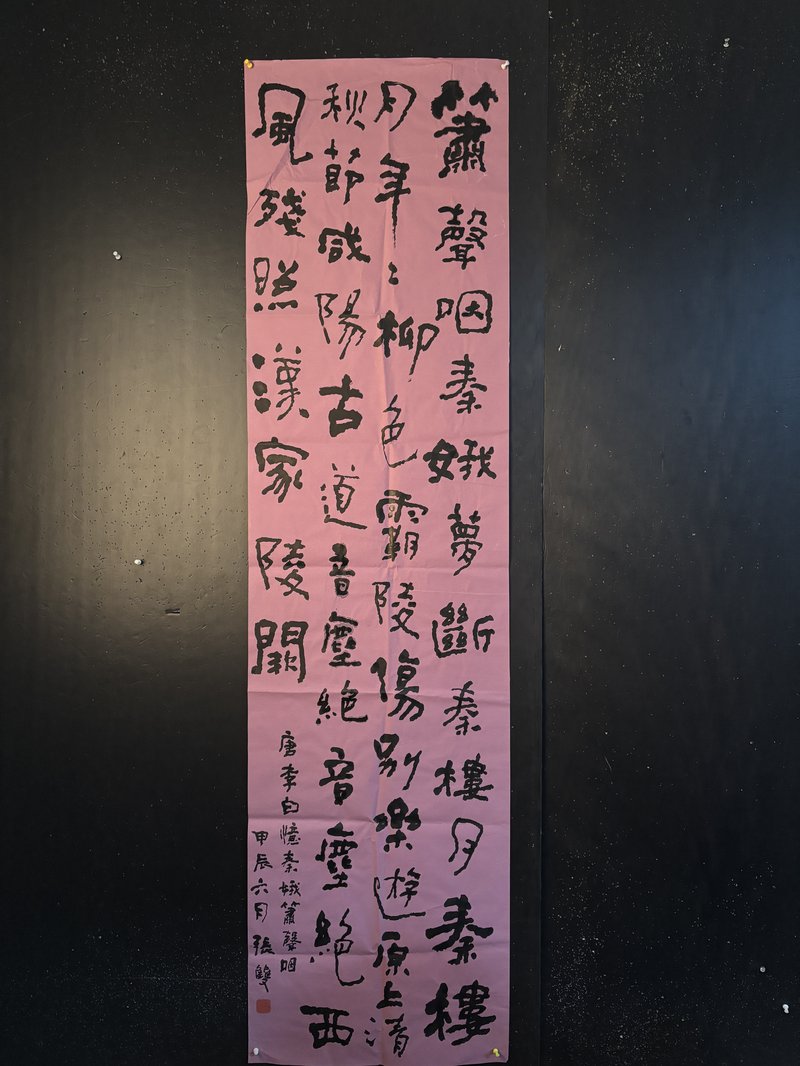 簫聲咽秦娥夢斷秦樓月秦樓
月年〻柳色霸陵傷別樂遊原上清
秋節咸陽古道音塵絕音塵絕西
風殘照漢家陵闕
唐李白憶秦娥簫聲咽
甲辰六月張雙